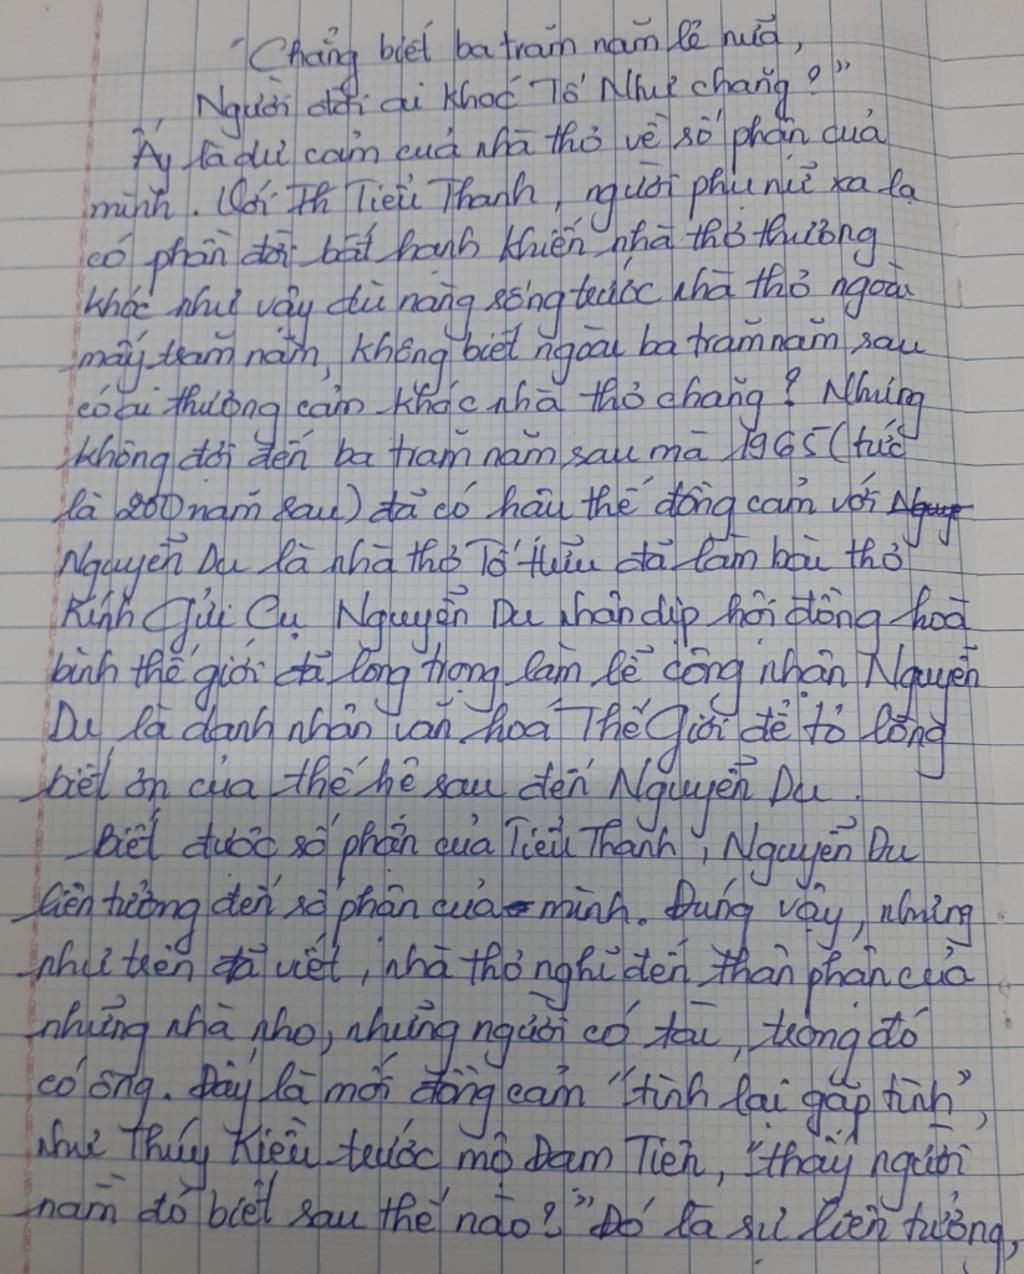 "Chẳng biết ba trăm năm lẻ nữa,
Người đời ai khóc Tố Như chăng?"
Ấy là dự cảm của nhà thơ về số phận của
mình. Với Tiểu Thanh, người phụ nữ xa lạ
có phận đời bất hạnh khiến nhà thơ thương
khóc như vậy dù nàng sống trước nhà thơ ngoài
mấy trăm năm, không biết ngoài ba trăm năm sau
có ai thương cảm khóc nhà thơ chăng? Nhưng
không đợi đến ba trăm năm sau mà 1965 (tức
là 200 năm sau) đã có hậu thế đồng cảm với
Nguyễn Du là nhà thơ Tố Hữu đã làm bài thơ
Kính Gửi Cụ Nguyễn Du nhân dịp hội đồng hoà
bình thế giới đã long trọng làm lễ công nhận Nguyễn
Du là danh nhân văn hoá Thế Giới để tỏ lòng
biết ơn của thế hệ sau đến Nguyễn Du.
Biết được số phận của Tiểu Thanh, Nguyễn Du
liên tưởng đến số phận của mình. Đúng vậy, nhưng
như trên đã viết, nhà thơ nghĩ đến thân phận của
những nhà nho, những người có tài, trong đó
có ông. Đây là mối đồng cảm "tình lại gặp tình",
như Thúy Kiều trước mộ Đạm Tiên, "thấy người
nằm đó biết sau thế nào?" Đó là sự liên tưởng,